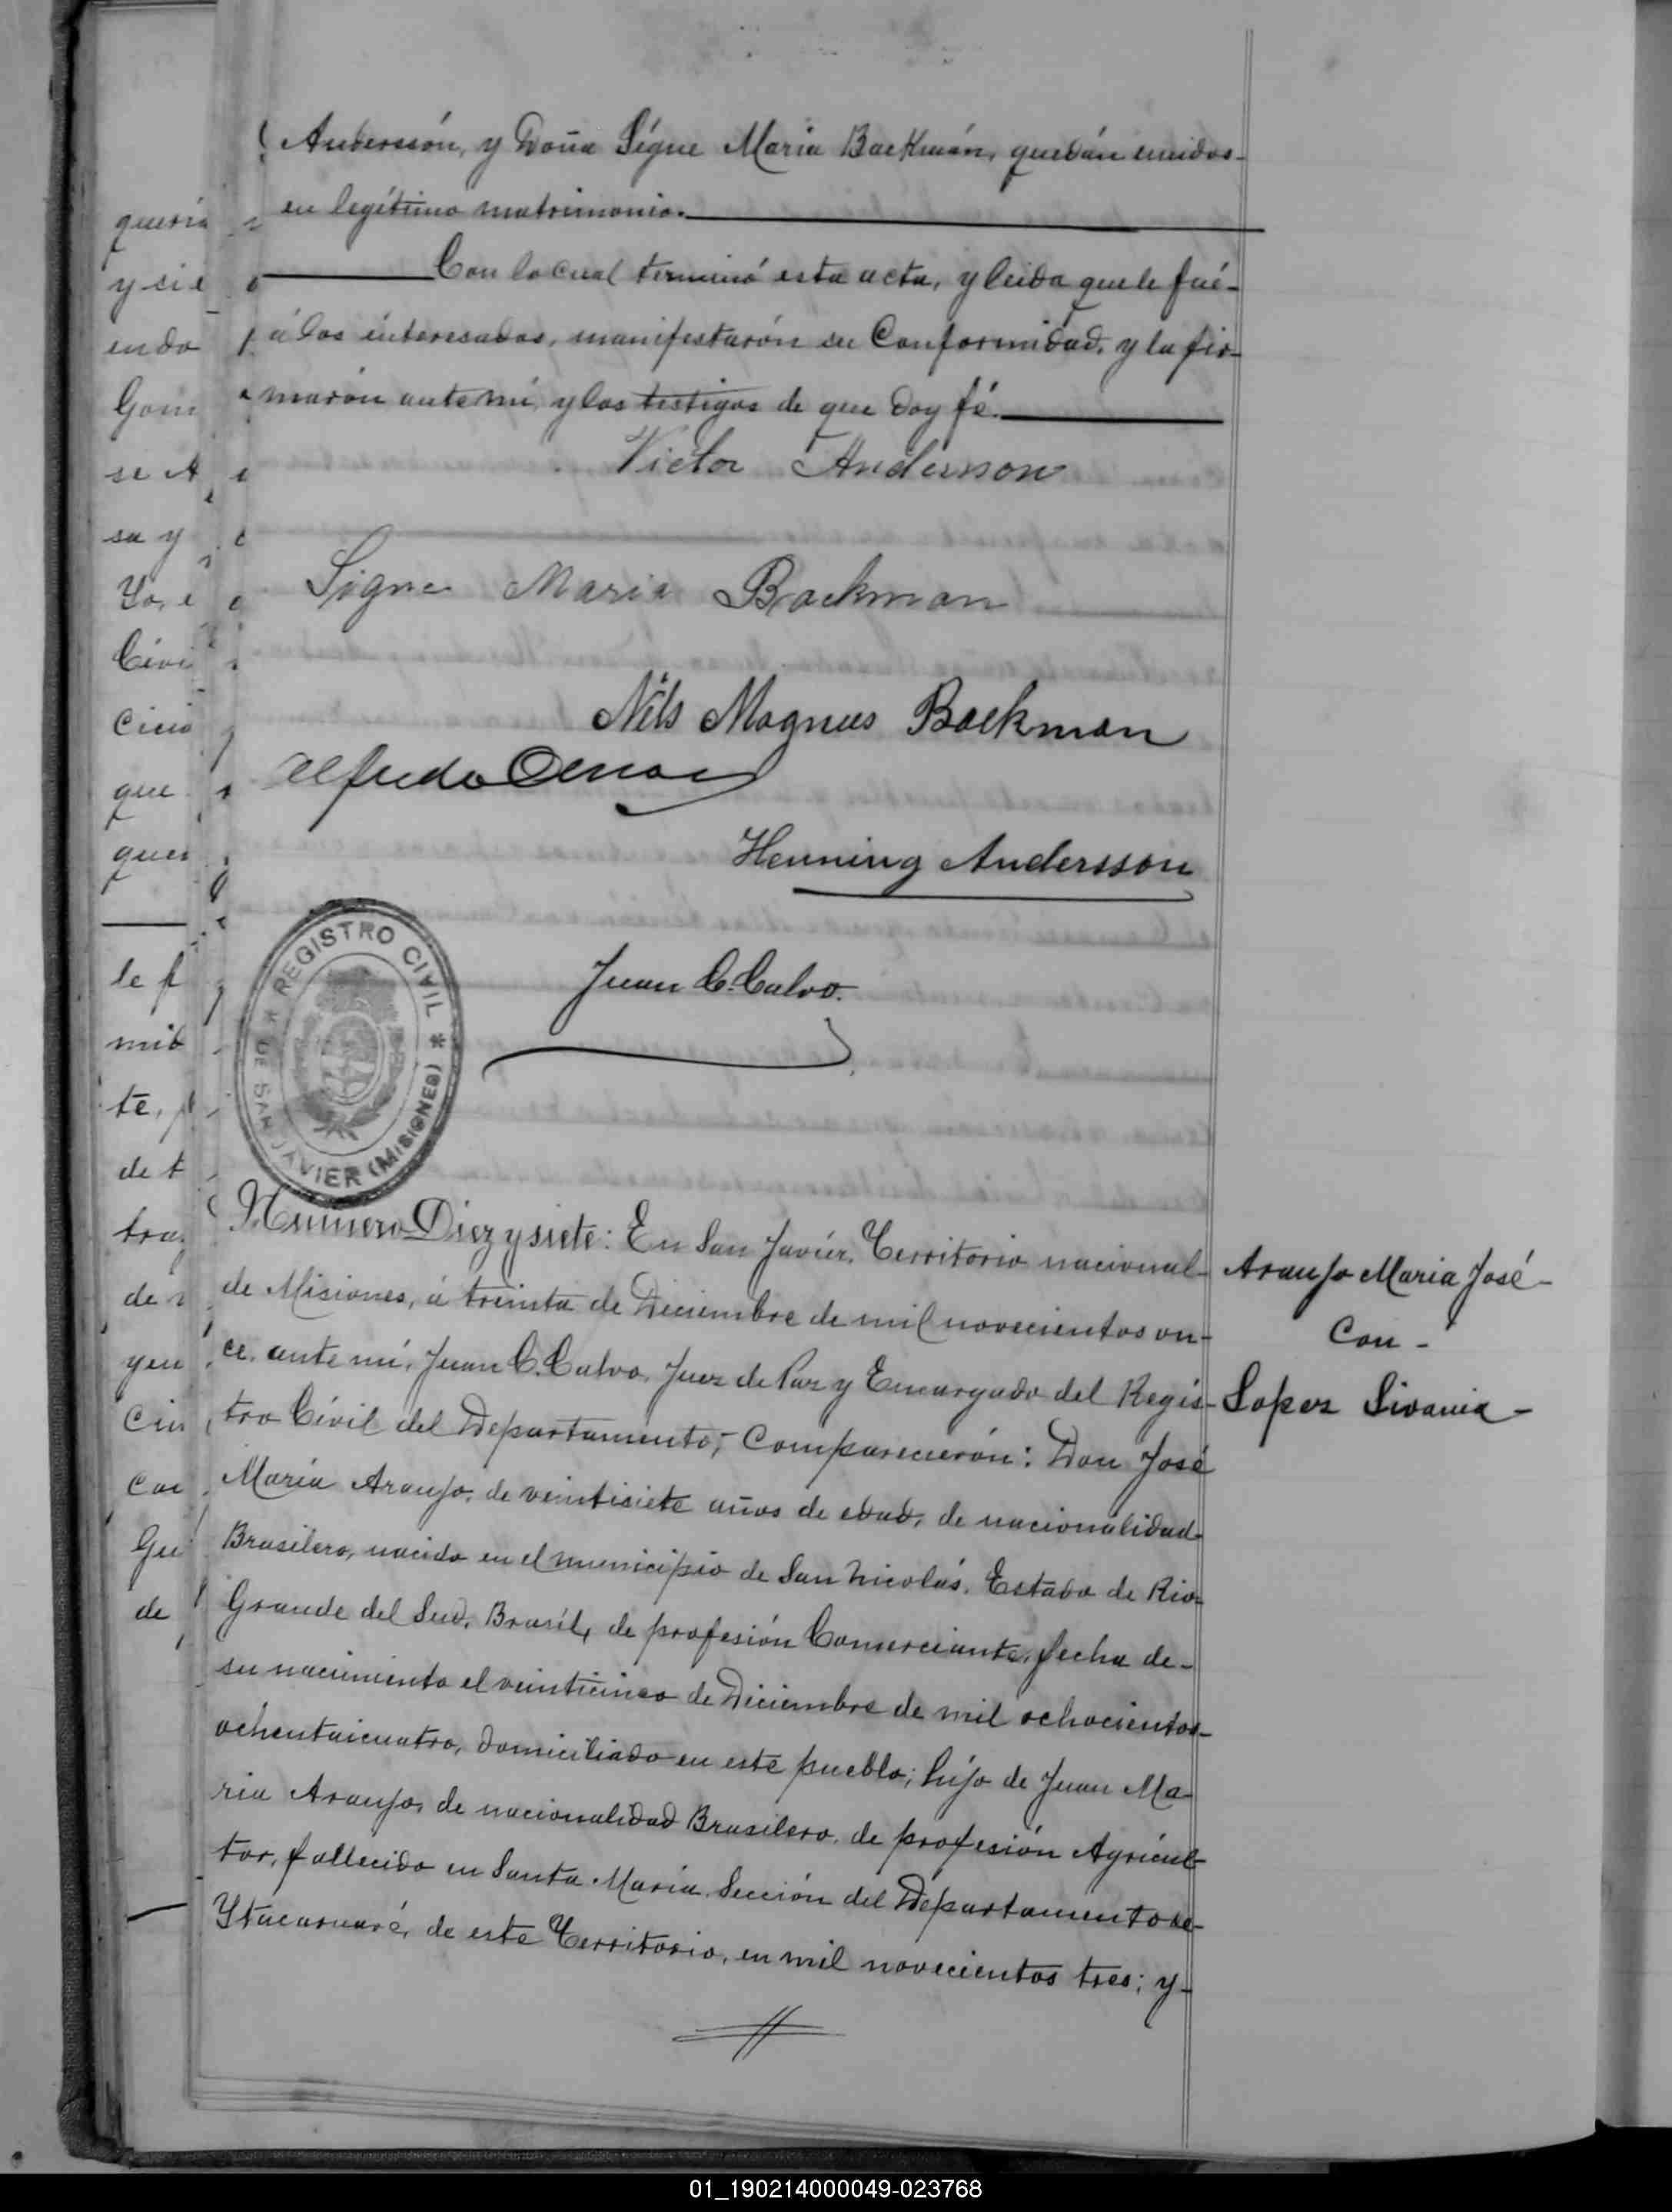 Anderssón, y Doña Sígne Maria Backmán, quedán unidos-
en legítimo matrimonio.
Con lo cual terminó esta acta, y leida que le fué-
á los interesados, manifestarón su Conformidad, y la fir-
marón ante mí, y los testigos de que doy fé.
Victor Andersson
Signe Maria Backman
Nils Magnus Backman
Alfredo
Henning Andersson
Juan C. Calvo.
REGISTRO CIVIL
DE SAN JAVIER (MISIONES)
Numero Diez y siete: En San Javier, Territorio nacional-
de Misiones, á treinta de Diciembre de mil novecientos on-
ce, ante mí, Juan C. Calvo, Juez de Paz y Encargado del Regis-
tro Cívil del Departamento; Comparecierón: Don José
María Araujo, de veintisiete años de edad, de nacionalidad-
Brasilero, nacido en el municipio de San Nicolás, Estado de Rio-
Grande del Sud, Brasíl, de profesión Comerciante, fecha de-
su nacimiento el veinticinco de Diciembre de mil ochocientos-
ochentaicuatro, domiciliado en este pueblo; hijo de Juan Ma-
ria Araujo, de nacionalidad Brasilero, de profesión Agricul-
tor, fallecido en Santa María, Sección del Departamento de-
Ytacaruaré, de este Territorio, en mil novecientos tres; y-
Araujo Maria José-
Con-
Lopez Sivania-
quería
y sie
endo
Gom
se A
sa y
Yo, e
Civi
Cinco
que
ques
le f
mid
te, p
de t
tra
de
y en
Cin
Gu
de
01_190214000049-023768